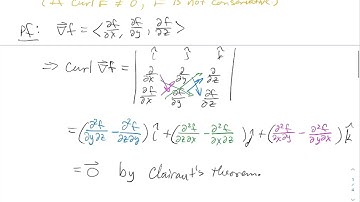 (A curl F ≠ 0, F is not conservative)
Pf: ∇⃗f = <∂f/∂x, ∂f/∂y, ∂f/∂z>
î ĵ k̂
⇒ Curl ∇⃗f = | ∂/∂x ∂/∂y ∂/∂z |
∂f/∂x ∂f/∂y ∂f/∂z
= (∂²f/∂y∂z - ∂²f/∂z∂y) î + (∂²f/∂z∂x - ∂²f/∂x∂z) ĵ + (∂²f/∂x∂y - ∂²f/∂y∂x) k̂
= 0⃗ by Clairaut's theorem.